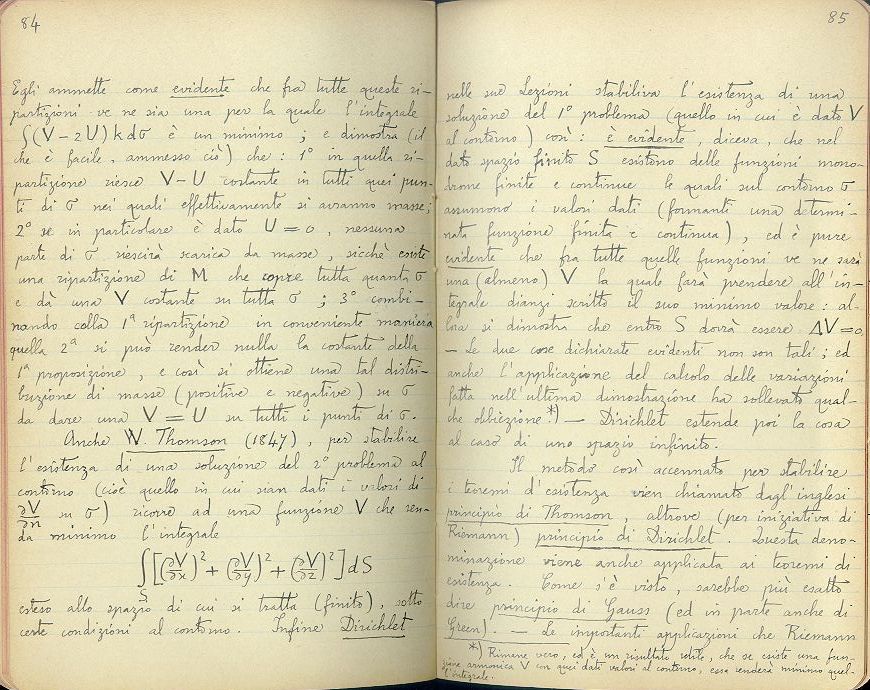 84
Egli ammette come evidente che fra tutte queste ri-
partizioni ve ne sia una per la quale l'integrale
∫(V-2U)kdσ è un minimo ; e dimostra (il
che è facile, ammesso ciò) che : 1° in quella ri-
partizione riesce V-U costante in tutti quei pun-
ti di σ nei quali effettivamente si avranno masse;
2° se in particolare è dato U=0, nessuna
parte di σ uescirà scarica da masse, sicchè esiste
una ripartizione di M che copre tutta quanta σ
e dà una V costante su tutta σ ; 3° combi-
nando colla 1ª ripartizione in conveniente maniera
quella 2ª si può render nulla la costante della
1ª proposizione, e così si ottiene una tal distri-
buzione di masse (positive e negative) su σ
da dare una V=U su tutti i punti di σ.
Anche W. Thomson (1847), per stabilire
l'esistenza di una soluzione del 2° problema al
contorno (cioè quello in cui sian dati i valori di
∂V/∂n su σ) ricorre ad una funzione V che ren-
da minimo l'integrale
∫_S [(∂V/∂x)² + (∂V/∂y)² + (∂V/∂z)²] dS
esteso allo spazio di cui si tratta (finito), sotto
certe condizioni al contorno. Infine Dirichlet
85
nelle sue Lezioni stabiliva l'esistenza di una
soluzione del 1° problema (quello in cui è dato V
al contorno) così : è evidente, diceva, che nel
dato spazio finito S esistono delle funzioni mono-
drome finite e continue le quali sul contorno σ
assumono i valori dati (formanti una determi-
nata funzione finita e continua), ed è pure
evidente che fra tutte quelle funzioni ve ne sarà
una (almeno) V la quale farà prendere all'in-
tegrale dianzi scritto il suo minimo valore : al-
lora si dimostra che entro S dovrà essere ΔV=0
— Le due cose dichiarate evidenti non son tali ; ed
anche l'applicazione del calcolo delle variazioni
fatta nell'ultima dimostrazione ha sollevato qual-
che obbiezione *) — Dirichlet estende poi la cosa
al caso di uno spazio infinito.
Il metodo così accennato per stabilire
i teoremi d'esistenza vien chiamato dagl'inglesi
principio di Thomson, altrove (per iniziativa di
Riemann) principio di Dirichlet. Questa deno-
minazione viene anche applicata ai teoremi di
esistenza. Come s'è visto, sarebbe più esatto
dire principio di Gauss (ed in parte anche di
Green). — Le importanti applicazioni che Riemann
*) Rimane vero, ed è un risultato utile, che se esiste una fun-
zione armonica V con quei dati valori al contorno, essa renderà minimo quel-
l'integrale.